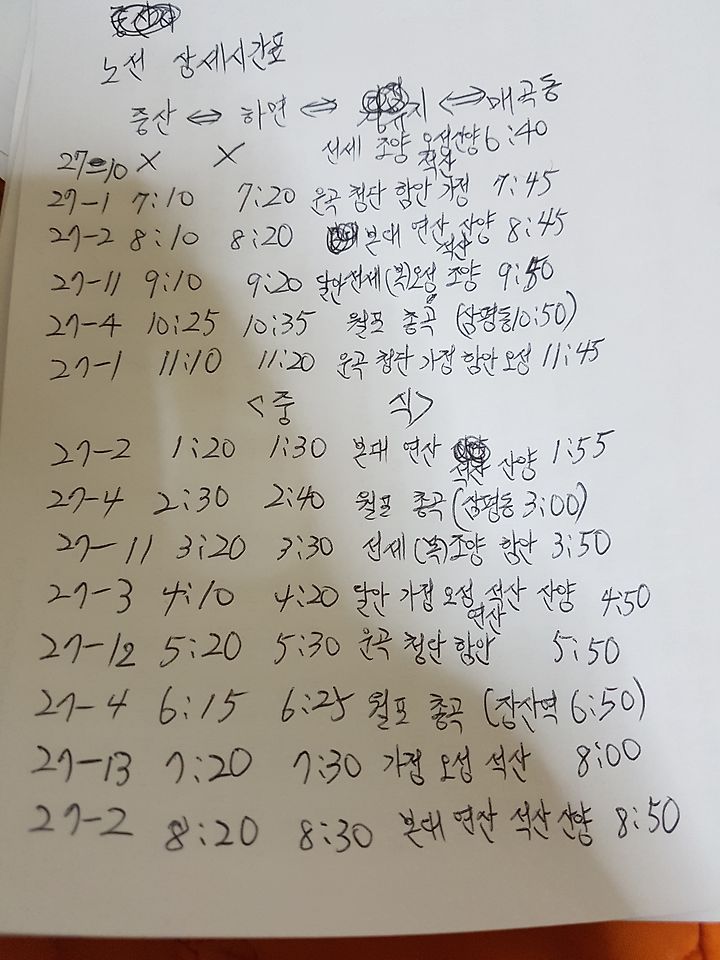 노선 상세시간표
중산 ⇔ 하연 ⇔ 지 ⇔ 매곡동
27-10 X X 신세 조양 오성산양 6:40
석산
27-1 7:10 7:20 운곡 첨단 함안 가정 7:45
27-2 8:10 8:20 본대 연산 산양 8:45
석산
27-11 9:10 9:20 달안신세(복)오성 조양 9:50
27-4 10:25 10:35 월포 총곡 (삼평동10:50)
27-1 11:10 11:20 운곡 첨단 가정 함안 오성 11:45
<중 식>
27-2 1:20 1:30 본대 연산 석산 산양 1:55
27-4 2:30 2:40 월포 총곡 (삼평동 3:00)
27-11 3:20 3:30 신세 (복)조양 함안 3:50
27-3 4:10 4:20 달안 가정 오성 석산 산양 4:50
연산
27-12 5:20 5:30 운곡 첨단 함안 5:50
27-4 6:15 6:25 월포 총곡 (잠산역 6:50)
27-13 7:20 7:30 가정 오성 석산 8:00
27-2 8:20 8:30 본대 연산 석산 산양 8:50